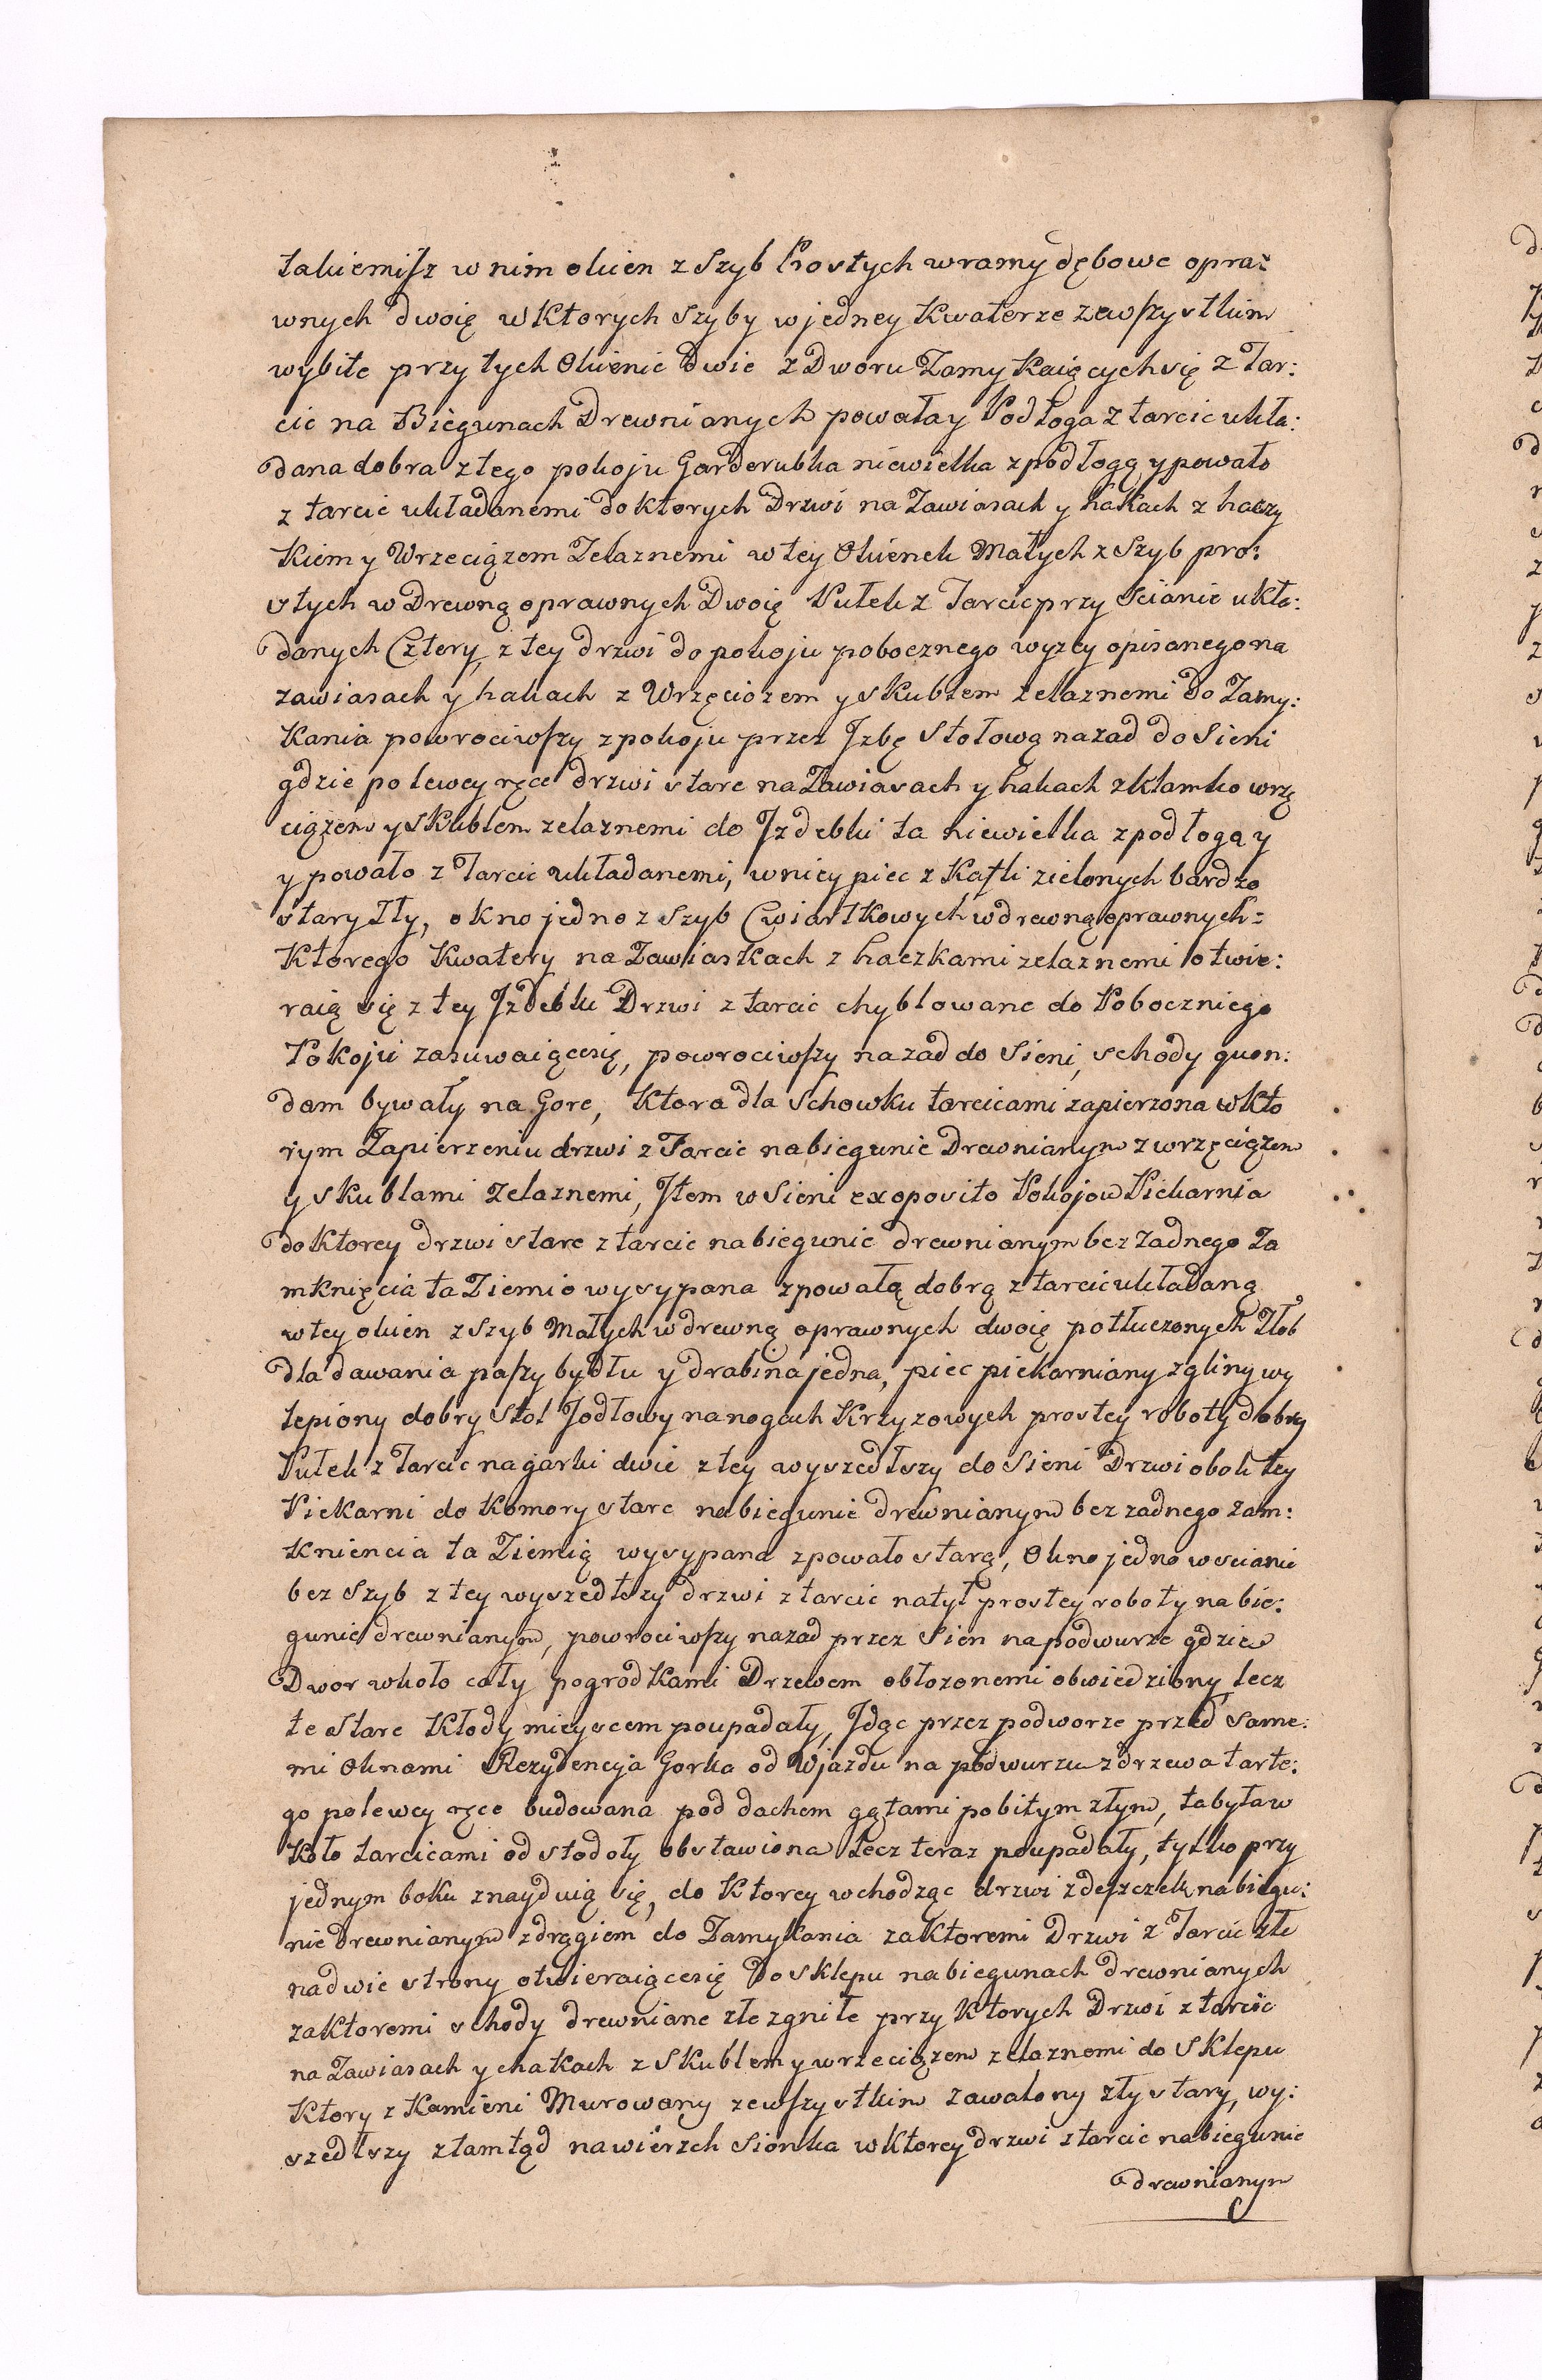 takiemisz w nim okien z Szyb Prostych wramy dębowe opra:
wnych dwoię wktorych Szyby wjedney Kwaterze zewszystkim
wybite przy tych Okienic dwie z Dworu Zamykaiących się z Tar:
cic na Biegunach Drewnianych powała y Podłoga z tarcic ukła:
dana dobra z tego pokoju Garderubka niewielka z podłogą y powało
z tarcic układanemi do ktorych Drzwi na Zawiasach y hakach z haczy
kiem y Wrzeciązem Zelaznemi w tey Okienek Małych z Szyb pro:
stych w Drewną oprawnych Dwoię Pułek z Tarcic przy Scianie ukła:
danych Cztery, z tey drzwi do pokoju pobocznego wyzey opisanego na
zawiasach y hakach z Wrzęciozem y skublem zelaznemi do Zamy:
kania powrociwszy z pokoju przez Jzbę Stołową nazad do Sieni
gdzie po lewey ręce drzwi stare na Zawiasach y hakach z klamko wrzę
ciązem y skublem zelaznemi do Jzdebki ta niewielka z podłogą y
y powało z Tarcic układanemi, w niey piec z Kafli zielonych bardzo
stary Zły, okno jedno z Szyb Cwiartkowych w drewną oprawnych:
Ktorego Kwatery na Zawiaskach z haczkami zelaznemi otwie:
raią się z tey Jzdebki Drzwi z tarcic chyblowane do Poboczniego
Pokoju zasuwaiącesię, powrociwszy nazad do Sieni, schody quon:
dam bywały na Gore, Ktora dla Schowku tarcicami zapierzona wkto
rym Zapierzeniu drzwi z Tarcic na biegunie Drewnianym z wrzęciązem
y skublami Zelaznemi, Jtem w Sieni exoposito Pokojow Piekarnia
do ktorey drzwi stare z tarcic na biegunie drewnianym bez Zadnego Za
mknięcia ta Ziemio wysypana z powałą dobrą z tarcic układaną
w tey okien z szyb Małych w drewną oprawnych dwoię potłuczonych Złob
dla dawania paszy bydłu y drabina jedna, piec piekarniany z gliny wy
lepiony dobry Stoł Jodłowy na nogach Krzyzowych prostey roboty dobry
Pułek z Tarcic na garki dwie z tey wyszedłszy do Sieni Drzwi obok tey
Piekarni do Komory stare na biegunie drewnianym bez zadnego zam:
knięncia ta Ziemią wysypana z powało starą, Okno jedno w scianie
bez Szyb z tey wyszedłszy drzwi z tarcic na tył prostey roboty na bie:
gunie drewnianym, powrociwszy nazad przez Sien na podwurze gdzie
Dwor wkoło cały pogrodkami Drzewem obłozonemi obwiedziony, lecz
te stare Kłody mieyscem poupadały, Jdąc przez podworze przed same:
mi Oknami Rezydencyja Gorka od Wjazdu na podwurzu z drzewa tarte:
go po lewey ręce budowana pod dachem gątami pobitym złym, ta była w
koło tarcicami od stodoły obstawiona Lecz teraz poupadały, tylko przy
jednym boku znayduią się, do Ktorey wchodząc drzwi z deszczek na biegu:
nie drewnianym z drągiem do Zamykania za Ktoremi Drzwi z Tarcic złe
na dwie strony otwieraiącesię Do sklepu na biegunach drewnianych
za Ktoremi schody drewniane złe zgniłe przy Ktorych Drzwi z tarcic
na Zawiasach y chakach z Skublem y wrzeciązem zelaznemi do Sklepu
Ktory z Kamieni Murowany zewszystkim zawalony zły stary, wy:
szedłszy z tamtąd na wierzch Sionka w Ktorey drzwi z tarcic na biegunie
drewnianym